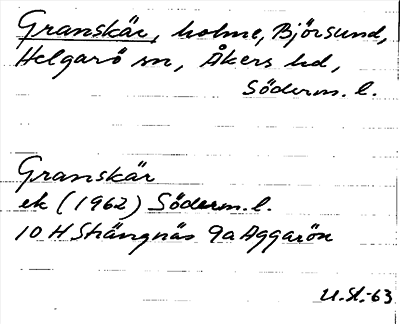 Granskär, holme, Björsund,
Helgarö sn, Åkers hd,
Söderm. l.
Granskär
ek (1962) Söderm. l.
10 H Strängnäs 9a Aggarön
U.St.-63